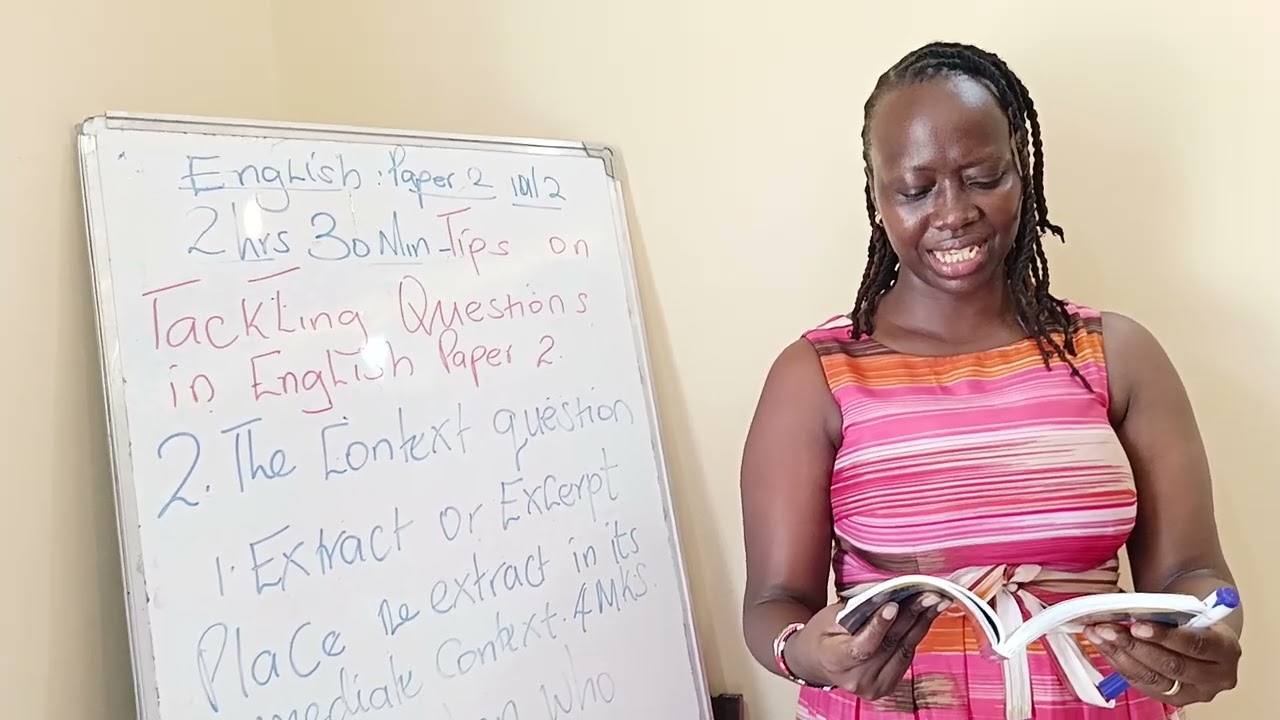 English : Paper 2 101/2
2 hrs 30 Min - Tips on
Tackling Questions
in English Paper 2.
2. The Context question
1. Extract or Excerpt
Place the extract in its
mediate Context. 4 Mks.
Who